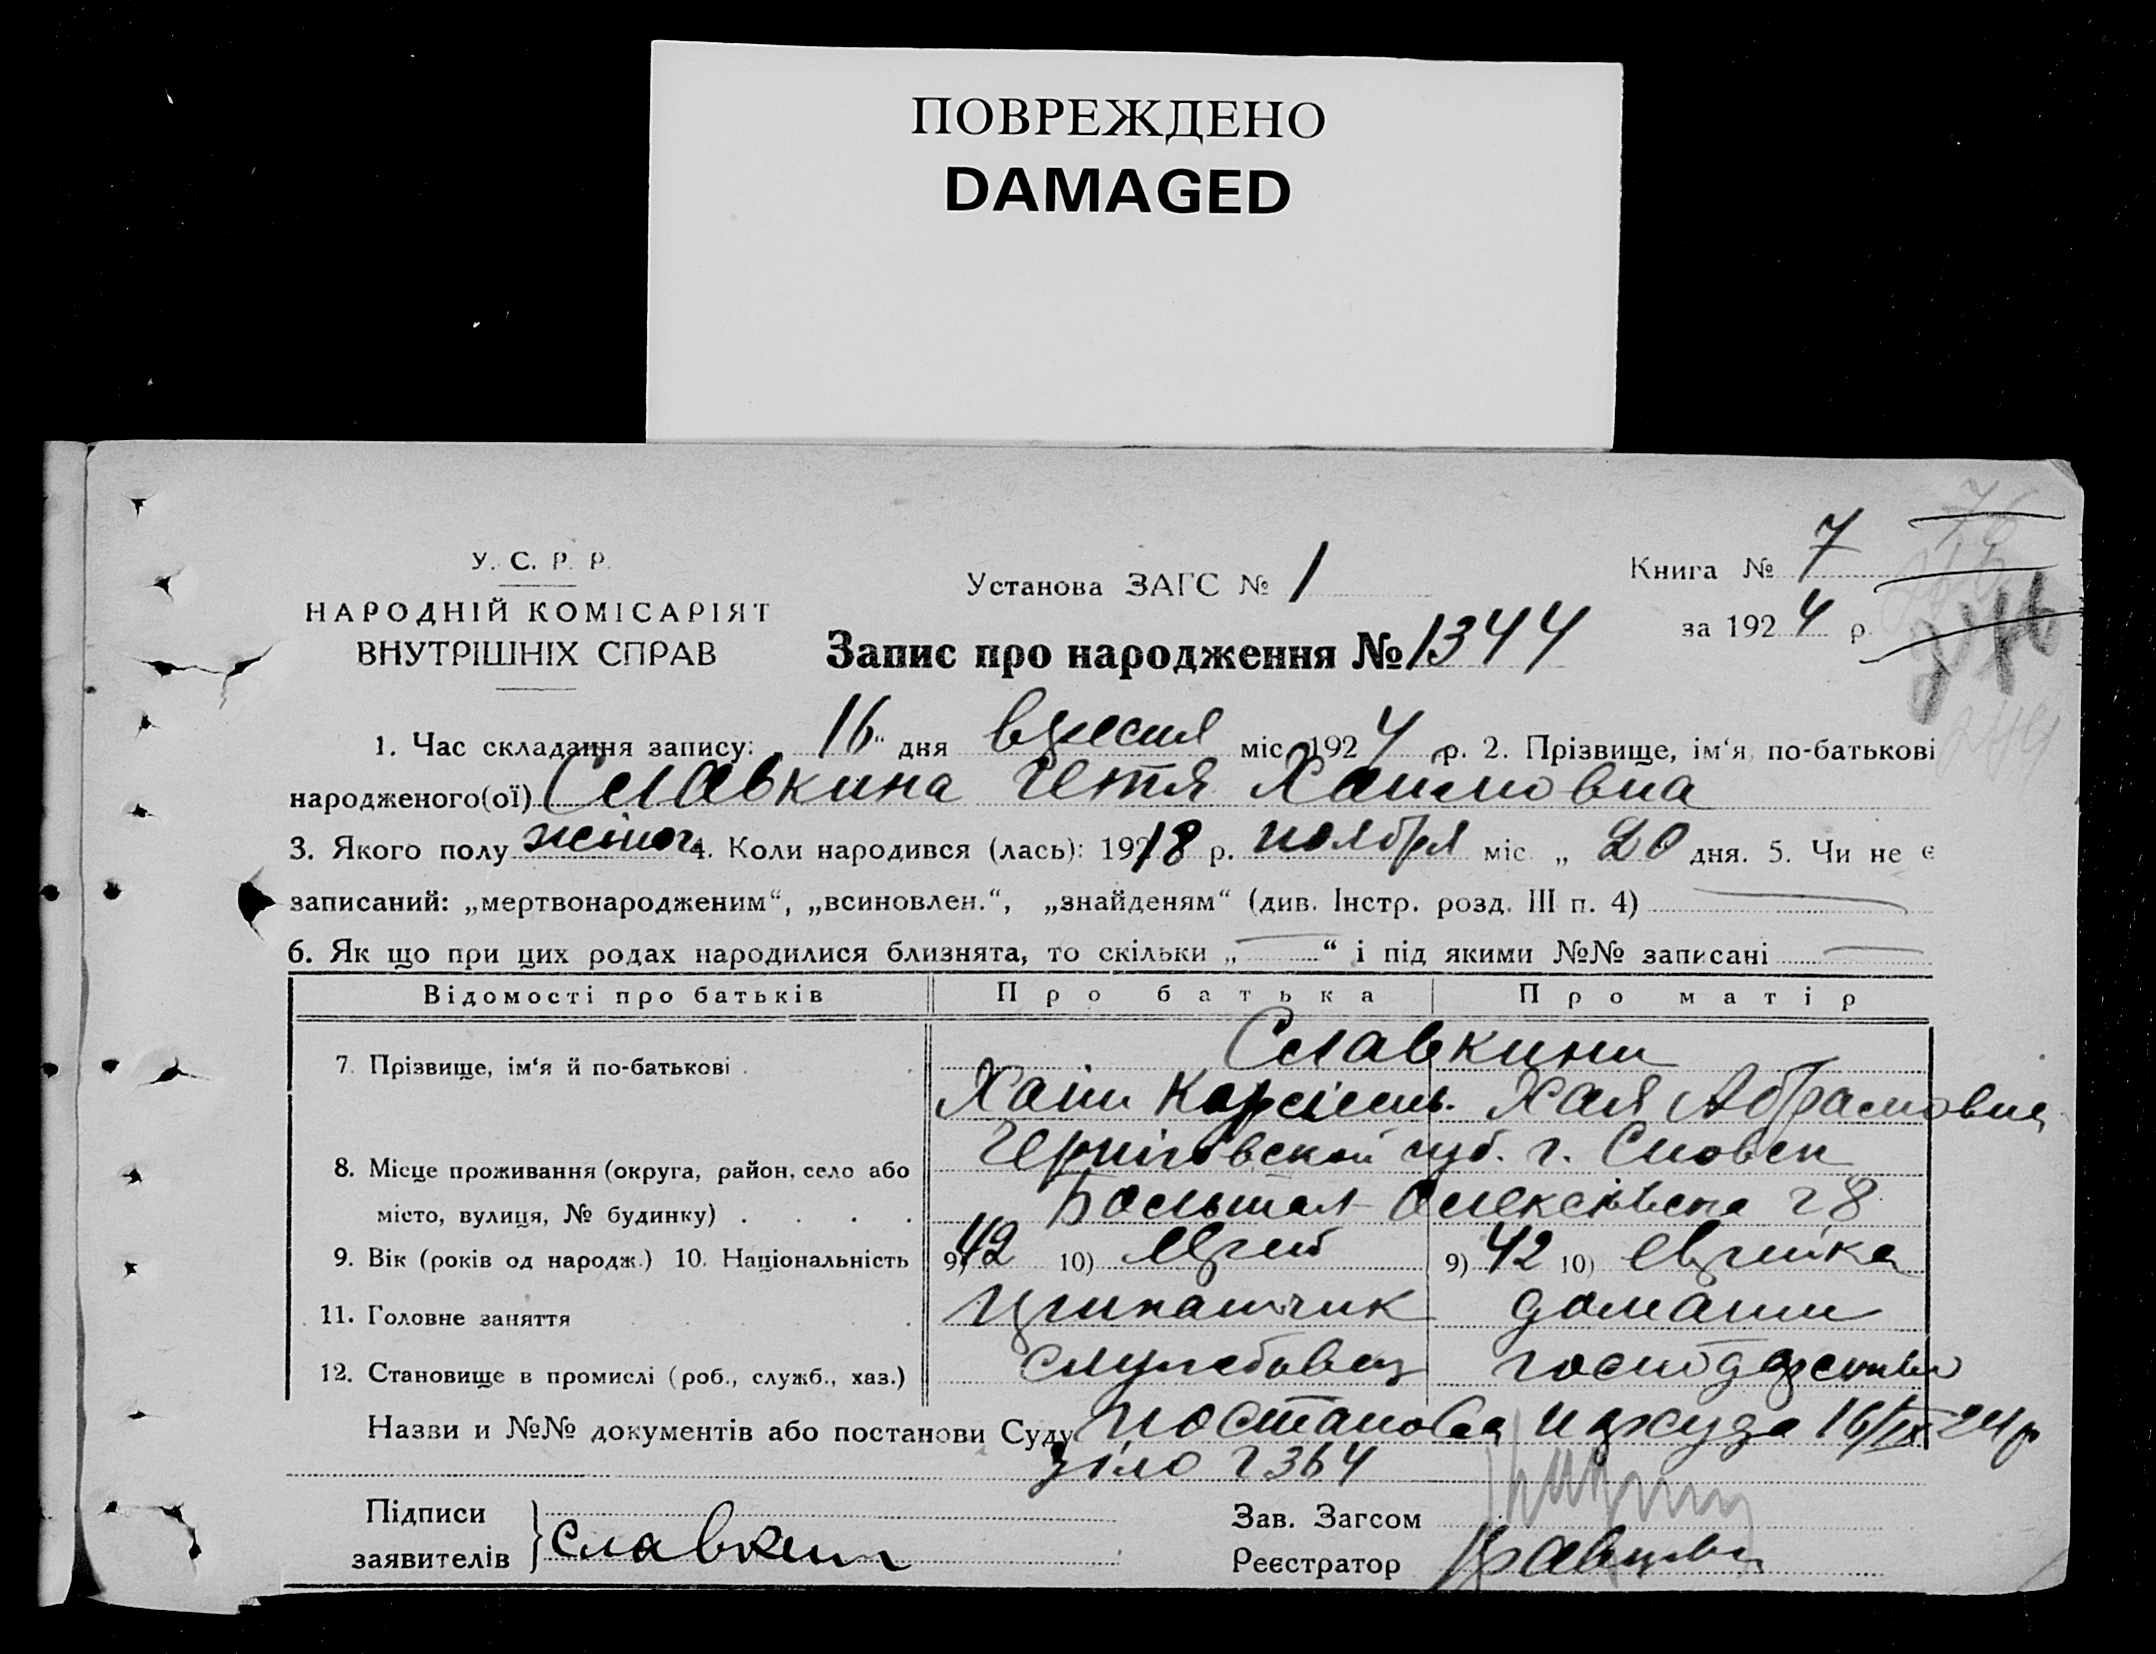 ПОВРЕЖДЕНО
DAMAGED
У. С. Р. Р.
НАРОДНІЙ КОМІСАРІЯТ
ВНУТРІШНІХ СПРАВ
Установа ЗАГС № 1
Книга № 7
за 1924 р.
Запис про народження № 1344
1. Час складання запису: „ 16 “ дня вересня міс. 1924 р. 2. Прізвище, ім‘я, по-батькові
народженого(ої) Славкина Гетя Хаимовна
3. Якого полу жіноч. 4. Коли народився (лась): 1918 р. ноября міс. „ 20 дня. 5. Чи не є
записаний: „мертвонародженим“, „всиновлен.“, „знайденям“ (див. Інстр. розд. III п. 4)
6. Як що при цих родах народилися близнята, то скільки „ “ і під якими №№ записані
Відомості про батьків Про батька Про матір
7. Прізвище, ім‘я й по-батькові Славкини
Хаім Хая Абрамовна
8. Місце проживання (округа, район, село або Черніговской губ. г. Сновск
місто, вулиця, № будинку) Большая 28
9. Вік (років од народж.) 10. Національність 9) 42 10) Еврей 9) 42 10) Еврейка
11. Головне заняття домашн
12. Становище в промислі (роб., служб., хаз.) службовец господарство
Назви и №№ документів або постанови Суду постанова 16/IX 24 р
1364
Підписи
заявителів } Славкин
Зав. Загсом
Реєстратор Кравцова